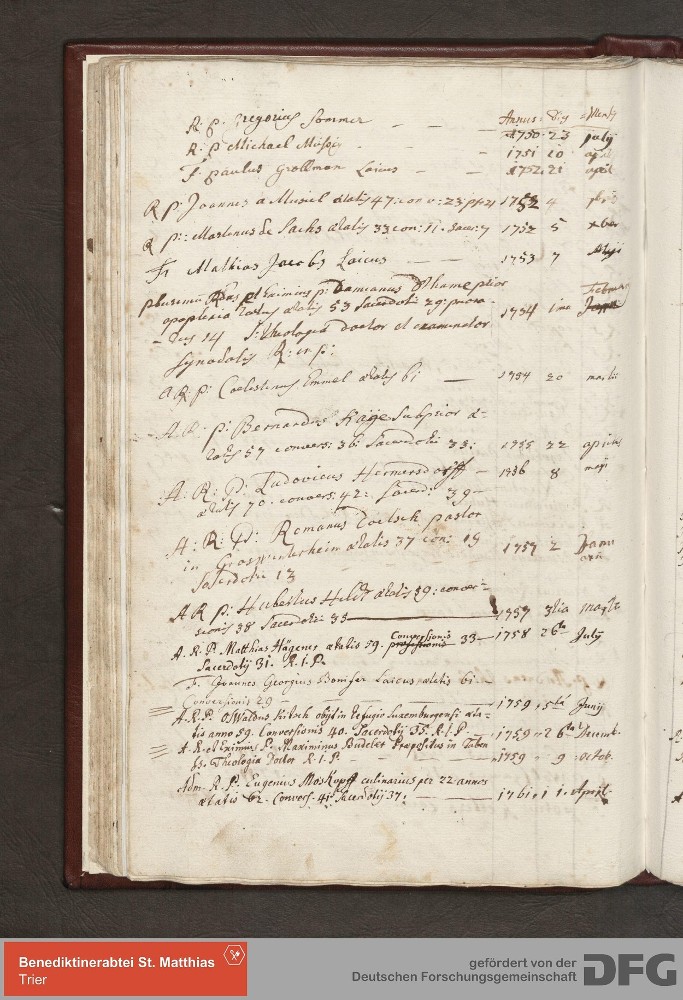 Annus Dies Mensis
R. p. Gregorius Sommer — — 1750 . 23 july
R: p Michael — — 1751 10 april
F. paulus Grollman Laicus — — 1752 . 21 april
R p: Joannes a Musiel ætatis 47: conv: 23: 1752 4
R p:: Martinus de Sachs ætatis 33 con: 11. Sacer: 7 1752 5 xber
Fr Mathias Jacobs Laicus — 1753 7 Maji
plurimum Rdus et Eximius p: Damianus
apoplexia tactus ætatis 53 Sacerdotii 29: 1754 1ma Februarii
14 S: theologiæ doctor et examinator
synodalis R: in p:
A R: p: Coelestinus Emmel ætatis 61 — 1754 20 martii
A. R. p: Bernardus Käye Subprior æ-
tatis 57 convers: 36: Sacerdotii 33: 1755 22 aprilis
A: R: P: Ludovicus Hermersdorff — 1756 8 maji
ætatis 70. convers: 42: Sacerd: 39 —
A: R: P: Romanus Doetsch pastor
in ætatis 37 con: 19 1757 2 Janu
Sacerdotii 13 arii
A R p: Hubertus Heldt ætatis 59: conver-
sionis 38 Sacerdotii 33 — 1757 31ia
A. R. P. Matthias Hagener ætatis 59. Conversionis 33 — 1758 26ta July
Sacerdotij 31. R. I. P.
F. Joannes Georgius Bonifer Laicus ætatis 61
Conversionis 29 — 1759 . 5ta Junij
A. R. P. Oswaldus Kirsch obijt in refugio Luxemburgensi æta-
tis anno 59. Conversionis 40. Sacerdotij 35. R. I. P. — 1759 . 26ta Decemb.
A. R. et Eximius P. Maximinus Budelet Præpositus in Taben
SS. Theologiæ Doctor R. I. P. — 1759 . 9 . octob.
Adm. R. P. Eugenius Moskopff culinarius per 22 annos
ætatis 62. Convers. 41 Sacerdotij 37. — 1761. 11. April.
Benediktinerabtei St. Matthias
Trier
gefördert von der
Deutschen Forschungsgemeinschaft DFG